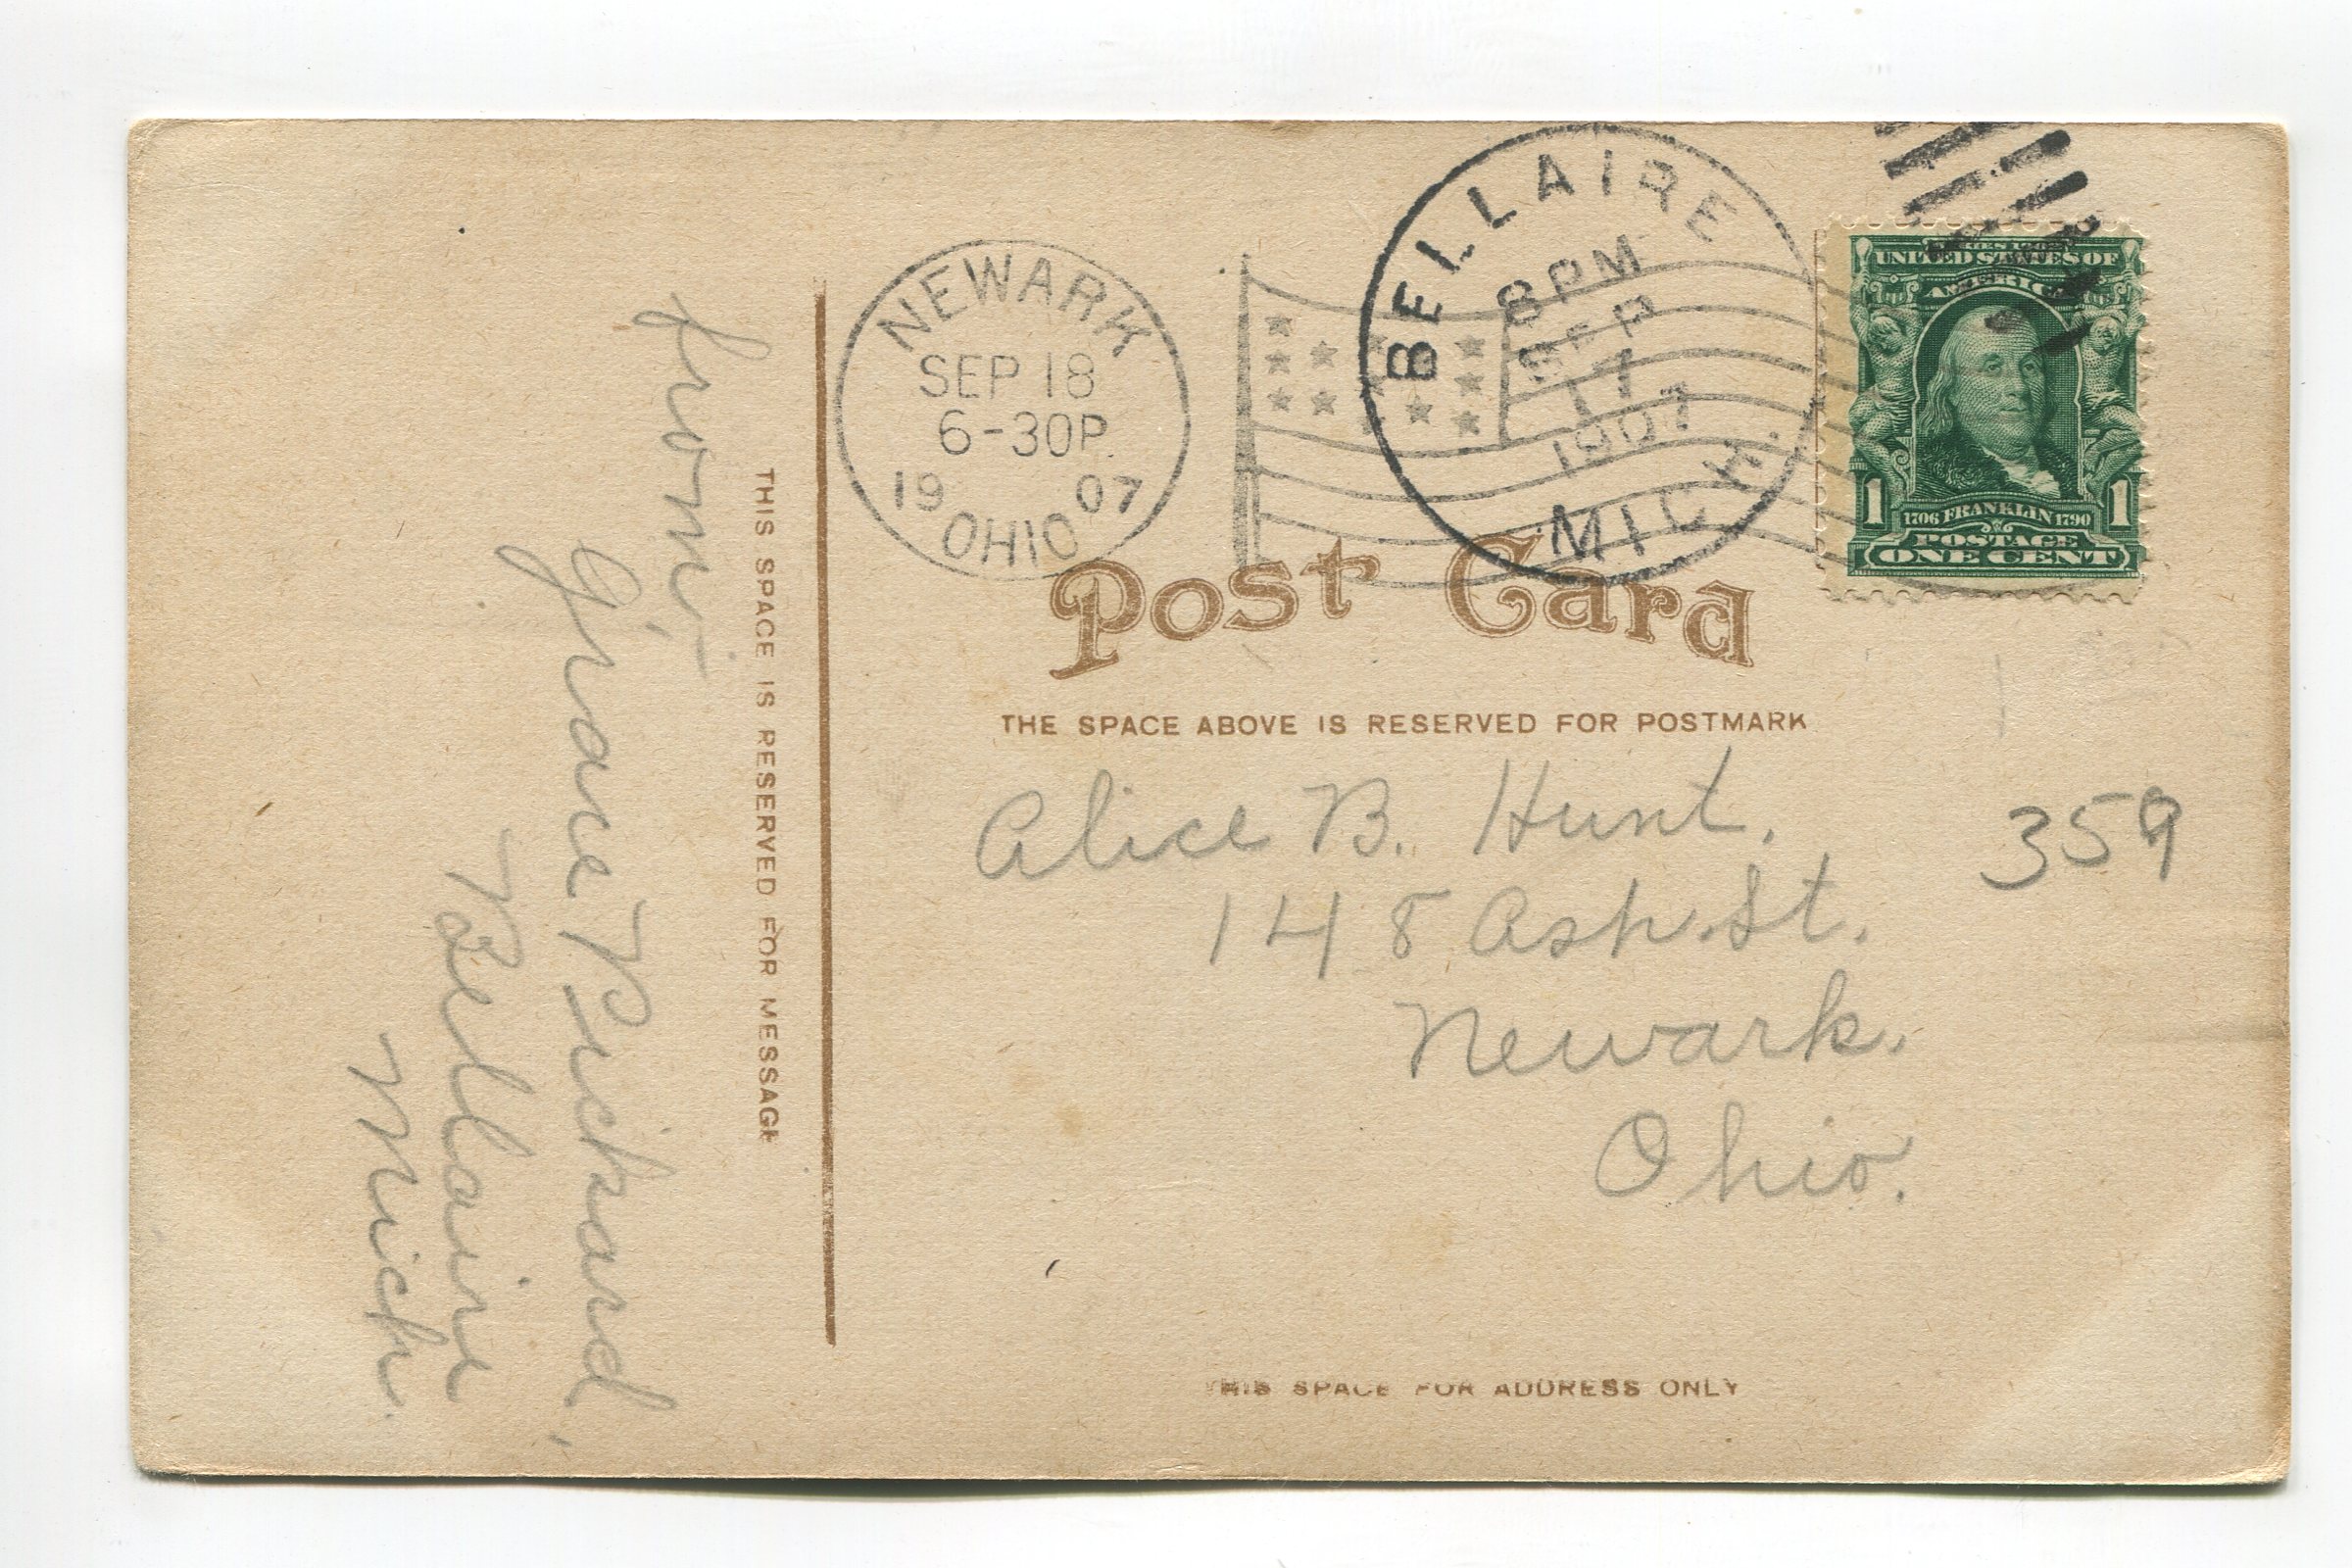 NEWARK
SEP 18
6-30P.
19 07
OHIO
BELLAIRE
8 PM
SEP
17
1907
MICH.
SERIES 1902
UNITED STATES OF
AMERICA
1706 FRANKLIN 1790
1 1
POSTAGE
ONE CENT
Post Card
THE SPACE ABOVE IS RESERVED FOR POSTMARK
THIS SPACE IS RESERVED FOR MESSAGE
from,—
Grace Pickard,
Bellaire
Mich.
Alice B. Hunt.
148 Ash. St.
Newark.
Ohio.
359
THIS SPACE FOR ADDRESS ONLY